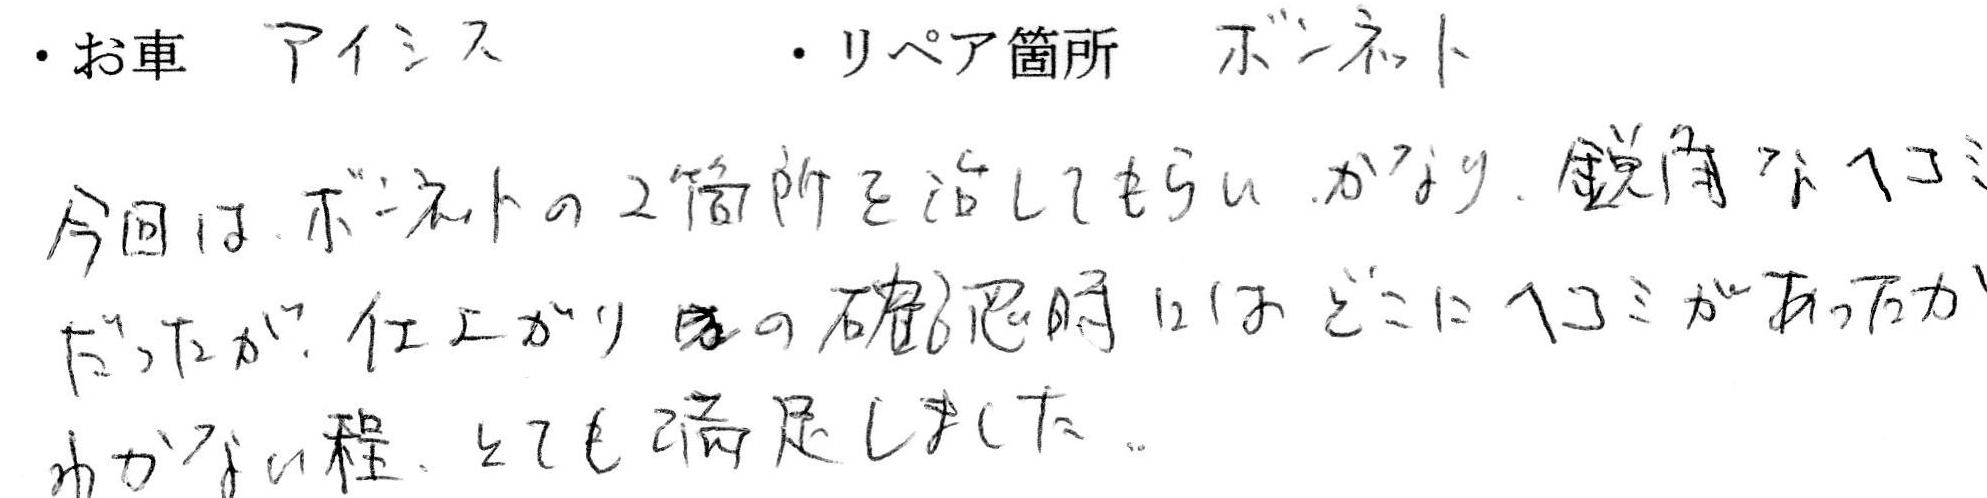 ・お車　アイシス　・リペア箇所　ボンネット
今回は、ボンネットの2箇所を治してもらい、かなり、鋭角なヘコミ
だったが、仕上がりの確認時にはどこにヘコミがあったか
わかない程、とても満足しました。